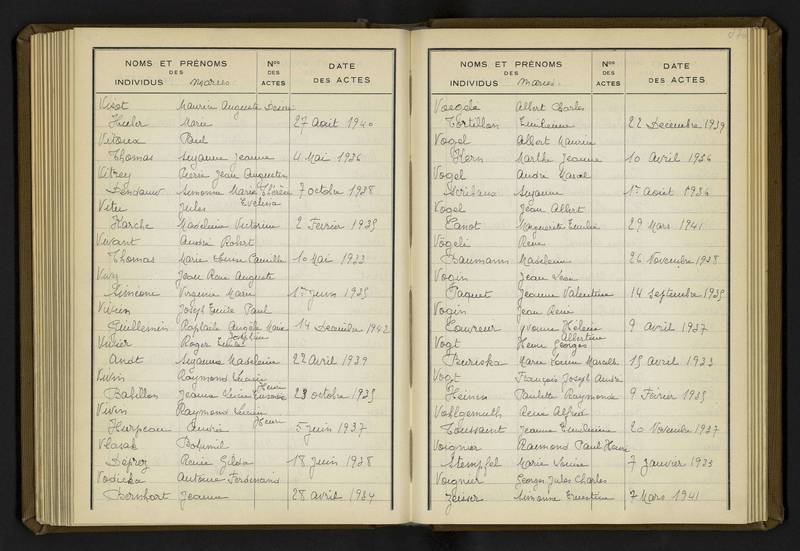 NOMS ET PRÉNOMS
DES
INDIVIDUS Mariés
Nos
DES
ACTES
DATE
DES ACTES
Visot Maurice Auguste
Marie 27 Août 1940
Vitoux Paul
Thomas Suzanne Jeanne 4 Mai 1936
Vitrey Pierre Jean Augustin
Simonne Marie Thérèse 7 octobre 1938
Vitu Jules Evelina
Karche Madeleine Victorine 2 Février 1935
Vivant André Robert
Thomas Marie Louise Camille 10 Mai 1933
Jean René Auguste
Siméone Virginie Marie 1er Juin 1935
Vivien Joseph Emile Paul
Guillemin Raphaële Angèle Marie 14 Décembre 1942
Vivier Roger Emile Joséphine
Andt Suzanne Madeleine 22 Avril 1939
Vivin Raymond Lucien Henri
Babillon Jeanne 23 octobre 1935
Vivin Raymond Lucien
Harpeau Henri 5 Juin 1937
Vlasak Bohumil
Deproz Renée Gilda 18 Juin 1938
Vodicka Antoine Ferdinand
Bernhart Jeanne 28 avril 1934
NOMS ET PRÉNOMS
DES
INDIVIDUS Mariés
Nos
DES
ACTES
DATE
DES ACTES
Voegele Albert Charles
Tortillon Emilienne 22 Décembre 1939
Vogel Albert Maurice
Horn Marthe Jeanne 10 Avril 1936
Vogel André Marcel
Suzanne 1er Août 1936
Vogel Jean Albert
Canot Marguerite Emilie 29 Mars 1941
Vögeli René
Baumann Madeleine 26 Novembre 1938
Vogin Jean Léon
Paquet Jeanne Valentine 14 septembre 1935
Vogin Jean René
Couvreur Yvonne Hélène 9 avril 1937
Vogt Henri Georges Albertine
Buriska Marie Louise 15 avril 1933
Vogt François Joseph André
Heinis Paulette Raymonde 9 Février 1935
Vohlgemuth René Alfred
Toussaint Jeanne Emilienne 20 Novembre 1937
Voignier Raimond Paul Henri
Stempfel Marie Louise 7 Janvier 1933
Voignier Georges Jules Charles
Simonne Ernestine 7 Mars 1941